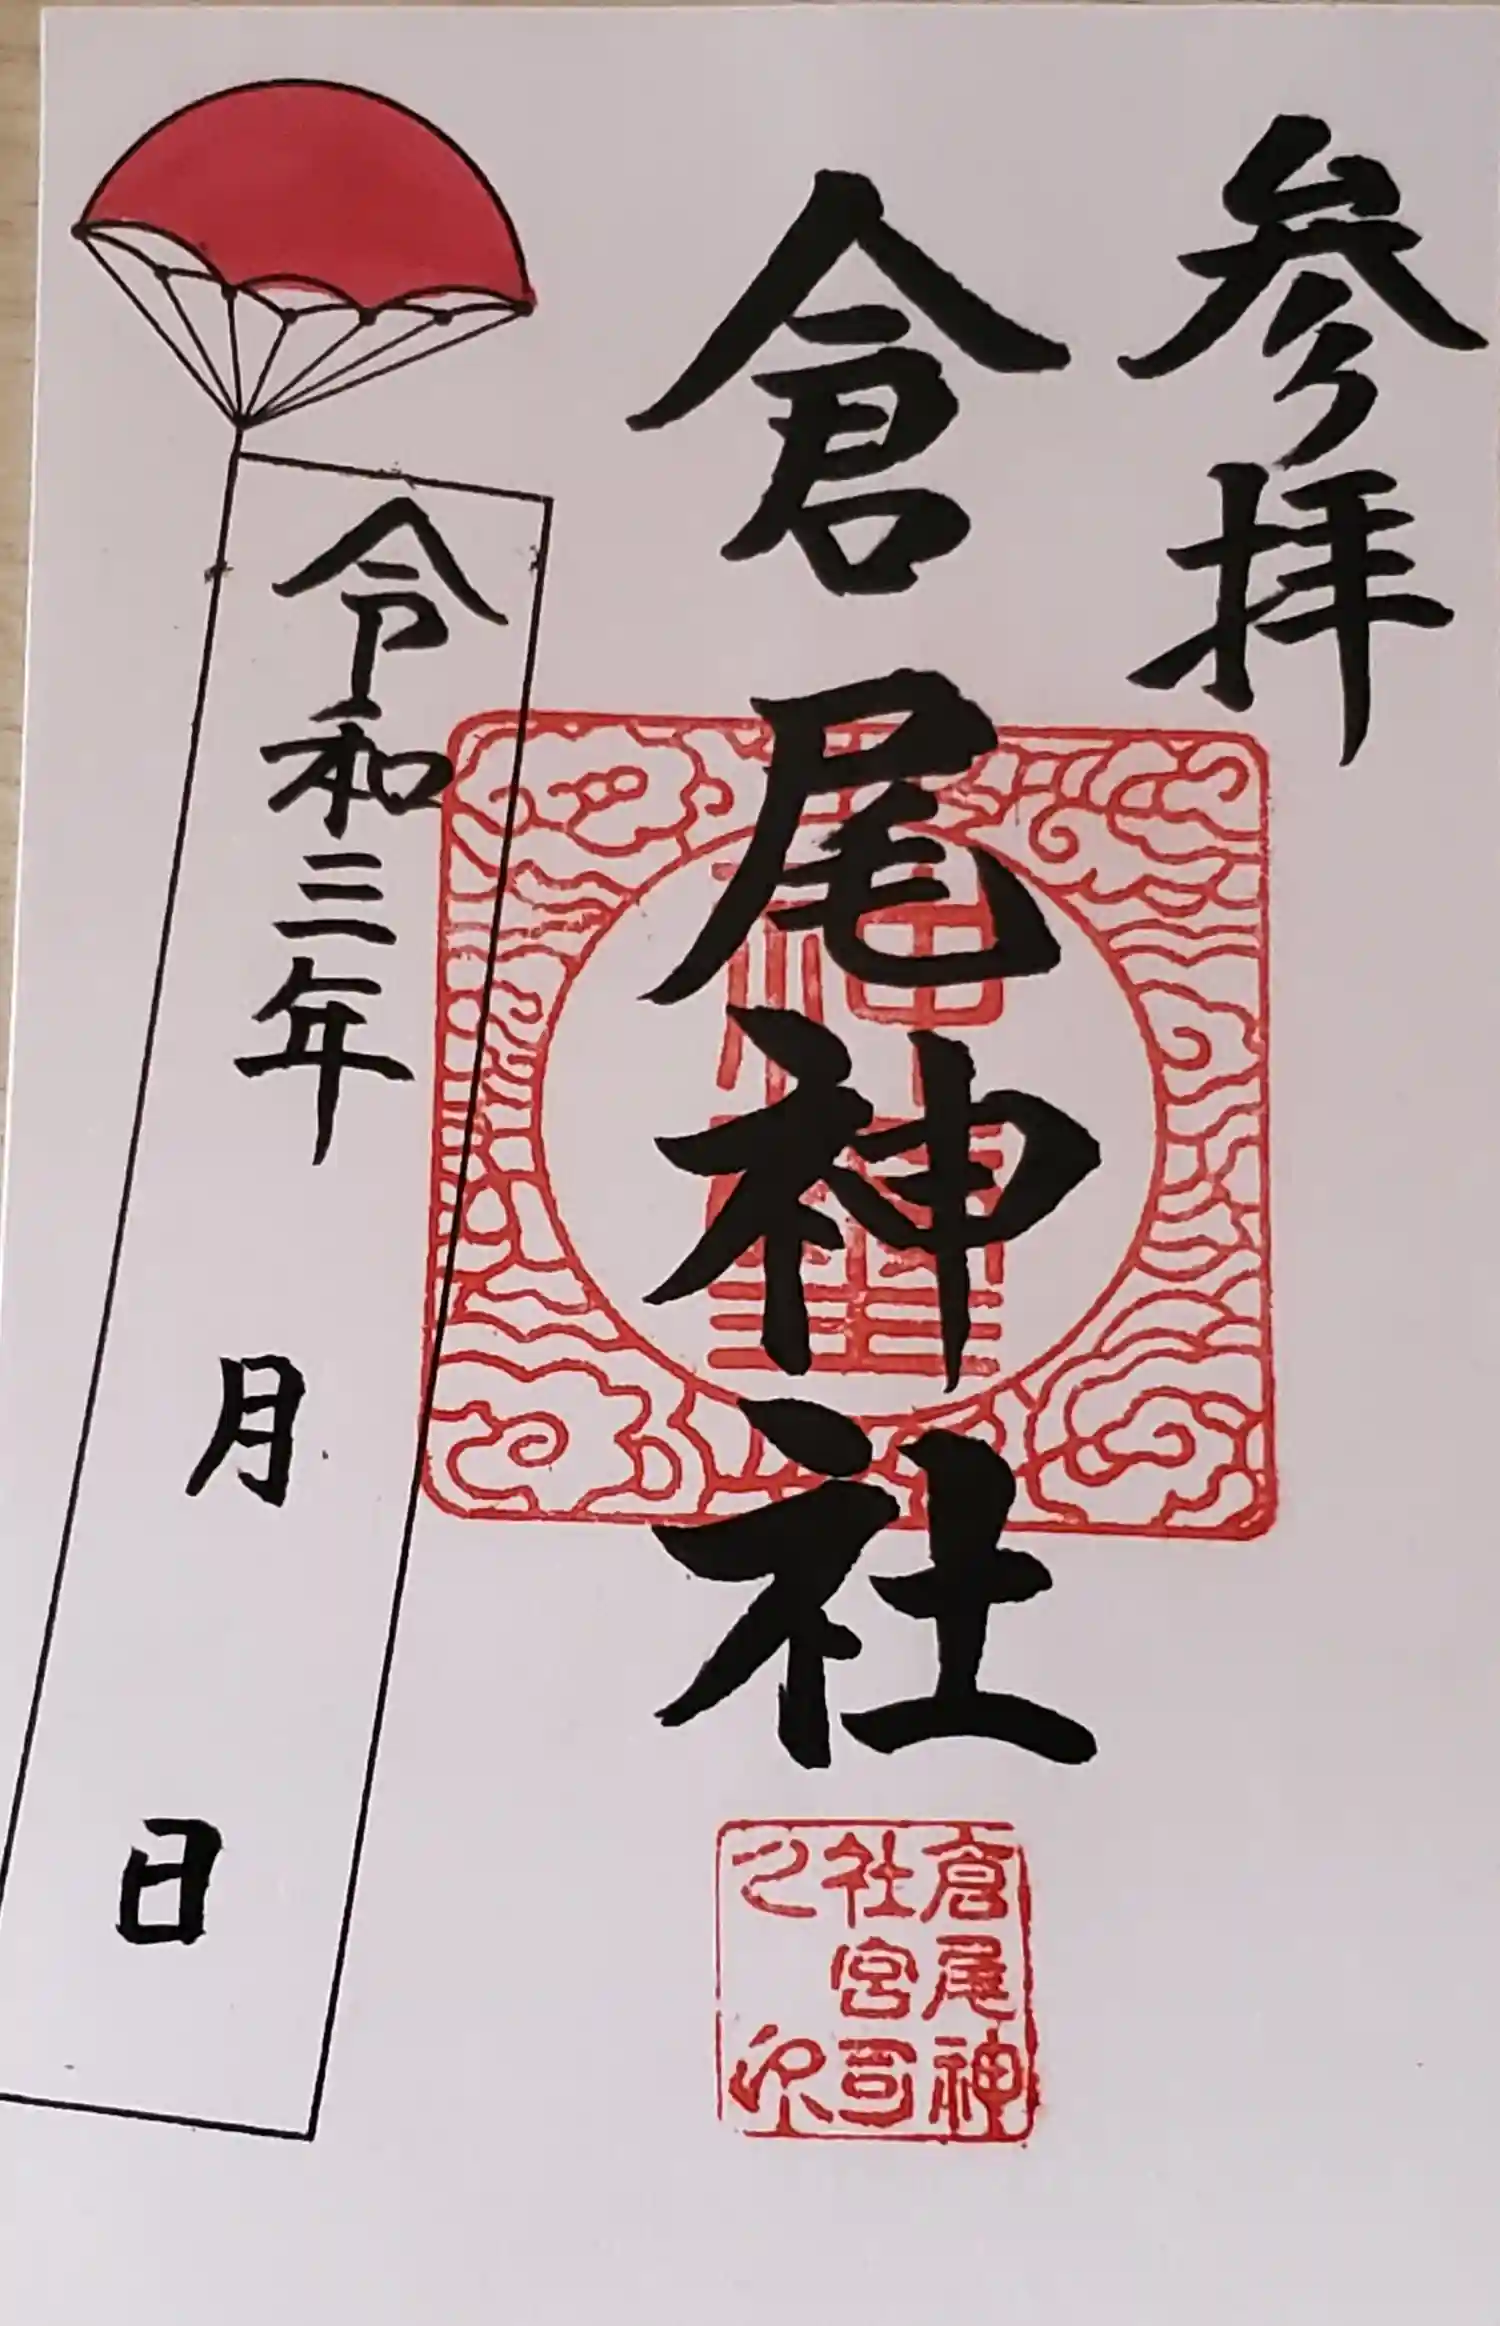 参拝
倉尾神社
令和三年　月　日
倉尾神
社宮司
之印